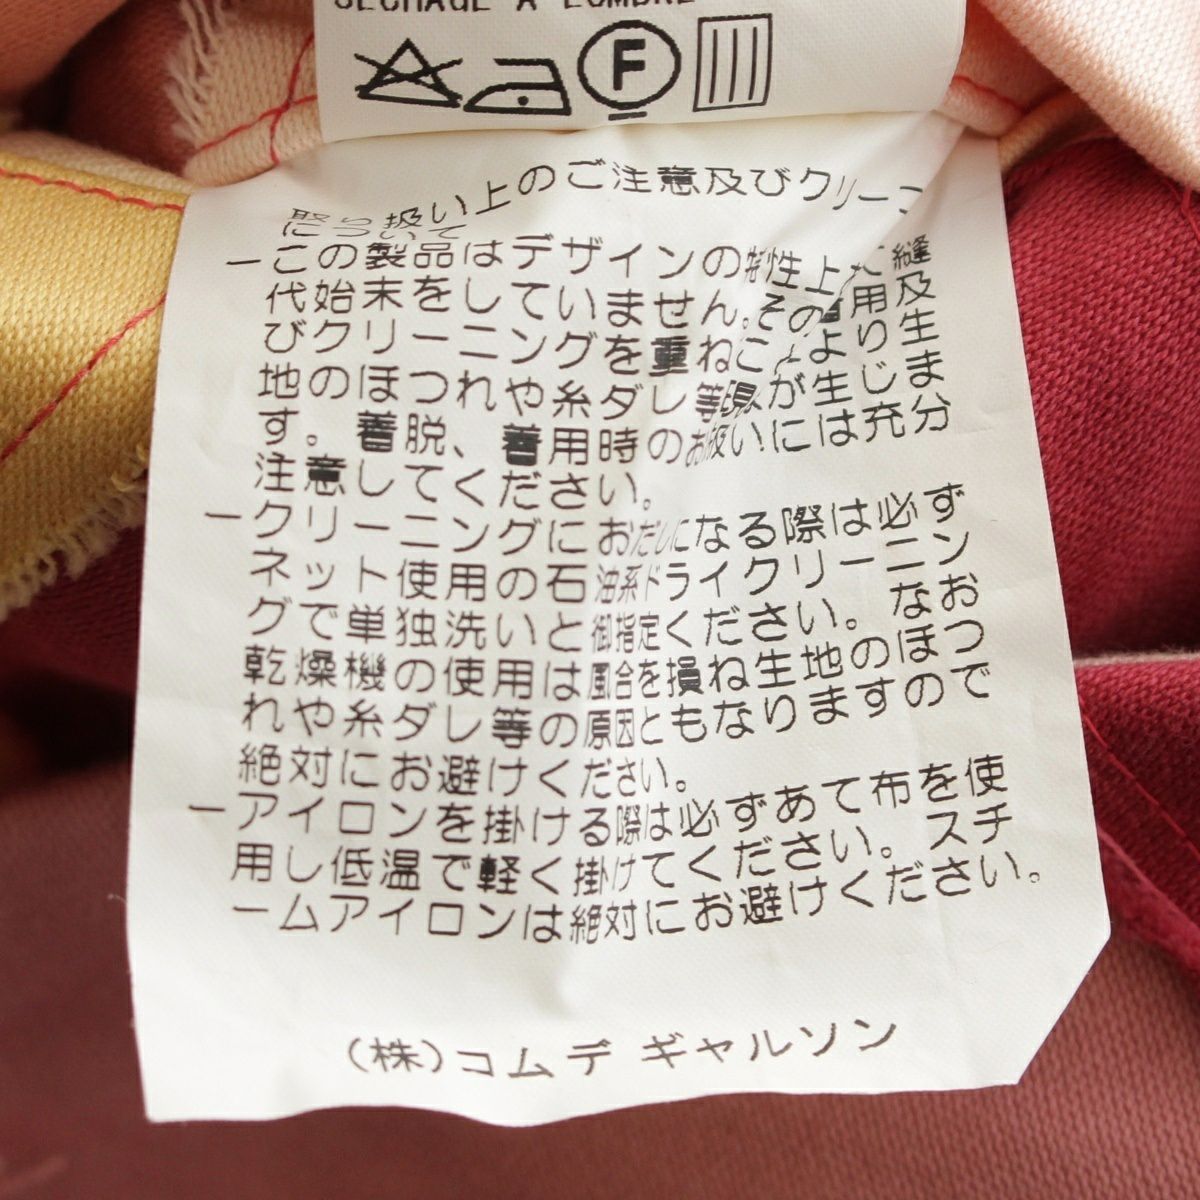 SECHAGE A L'OMBRE
F
取り扱い上のご注意及びクリーニ
について
ーこの製品はデザインの特性上 縫
代始末をしていません。その 用及
びクリーニングを重ねることより生
地のほつれや糸ダレ等 が生じま
す。着脱、着用時のお扱いには充分
注意してください。
ークリーニングにおだしになる際は必ず
ネット使用の石油系ドライクリーニン
グで単独洗いと御指定ください。なお
乾燥機の使用は風合を損ね生地のほつ
れや糸ダレ等の原因ともなりますので
絶対にお避けください。
ーアイロンを掛ける際は必ずあて布を使
用し低温で軽く掛けてください。スチ
ームアイロンは絶対にお避けください。
(株)コムデ ギャルソン